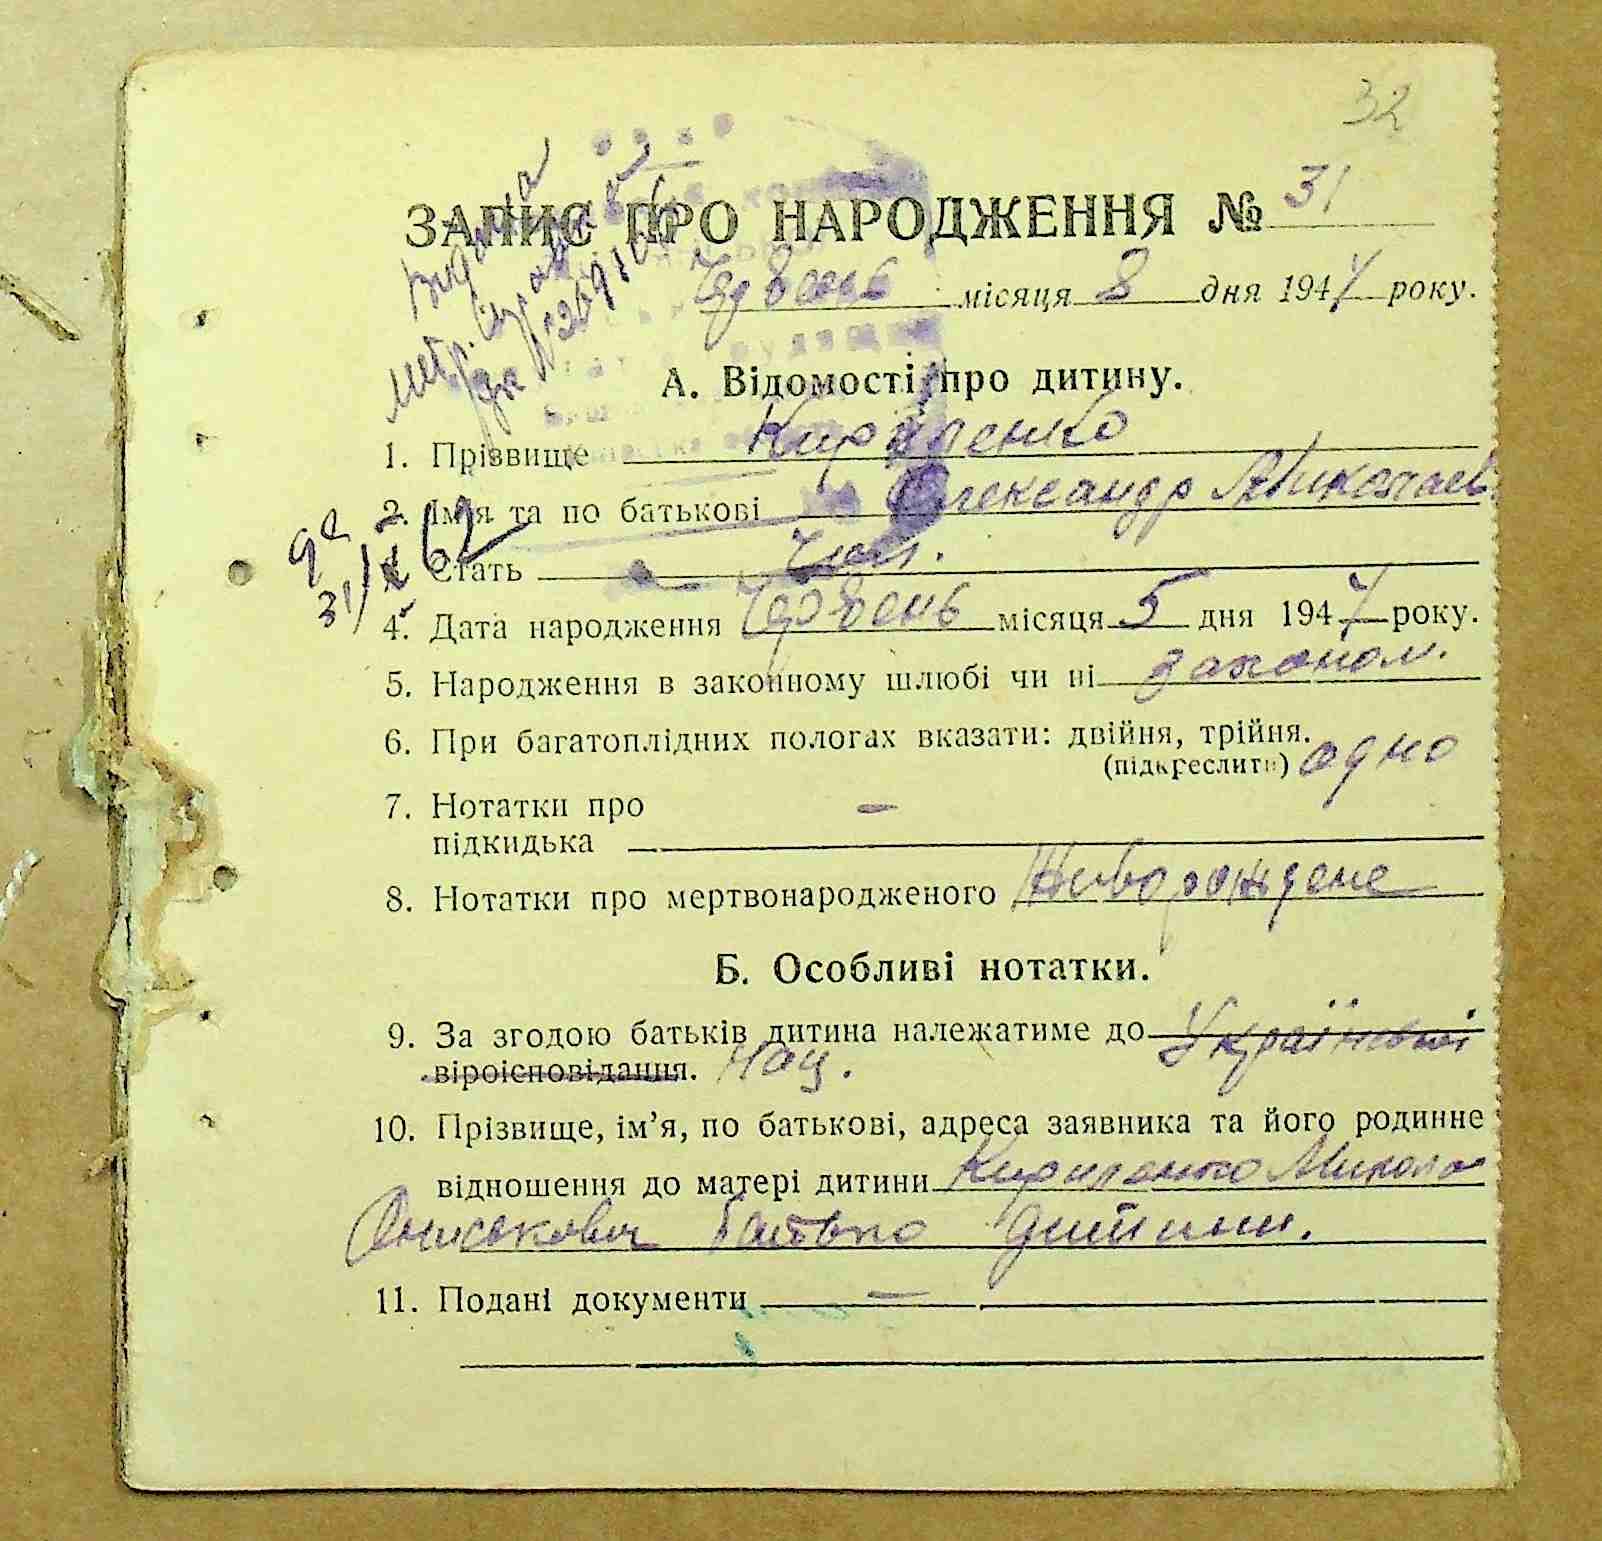 32
ЗАПИС ПРО НАРОДЖЕННЯ № 31
Червень місяця 8 дня 1947 року.
Видана
метр.
А. Відомості про дитину.
1. Прізвище Кириленко
2. Ім'я та по батькові Олександр Миколаєв
3. Стать Чол.
4. Дата народження Червень місяця 5 дня 1947 року.
5. Народження в законному шлюбі чи ні законом.
6. При багатоплідних пологах вказати: двійня, трійня.
(підкреслити) одно
7. Нотатки про –
підкидька
8. Нотатки про мертвонародженого Живорождене
Б. Особливі нотатки.
9. За згодою батьків дитина належатиме до Української
віроісповідання. Нац.
10. Прізвище, ім'я, по батькові, адреса заявника та його родинне
відношення до матері дитини Кириленко Микола
Ониськович батько дитини.
11. Подані документи –